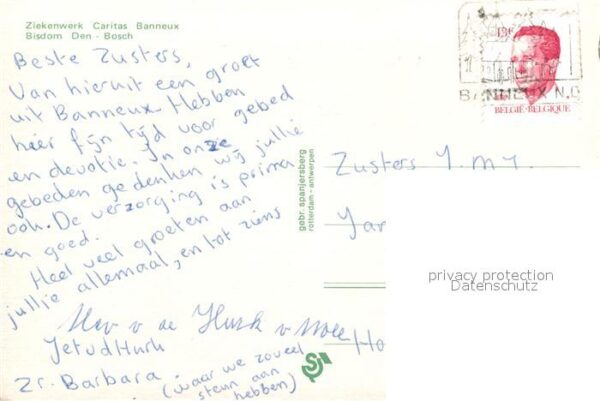 Ziekenwerk Caritas Banneux
Bisdom Den - Bosch
Beste Zusters,
Van hieruit een groet
uit Banneux Hebben
hier fijn tijd voor gebed
en devotie. In onze
gebeden gedenken wij jullie
ook. De verzorging is prima
en goed.
Heel veel groeten aan
jullie allemaal, en tot ziens
v de Hurk v
Jet vd Hurk
Zr. Barbara
(waar we zoveel
steun aan
hebben)
gebr. spanjersberg
rotterdam - antwerpen
13F
BANNEUX N.D
BELGIË-BELGIQUE
Zusters J.M.J.
Jan
Ho
privacy protection
Datenschutz